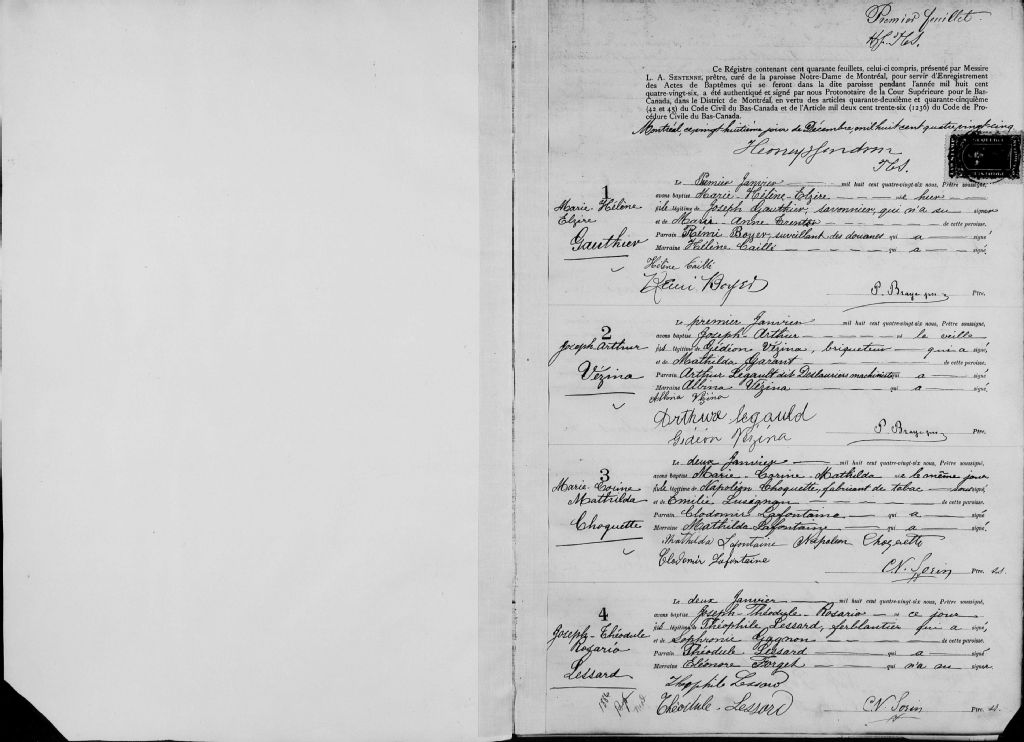 Premier feuillet.
Ce Régistre contenant cent quarante feuillets, celui-ci compris, présenté par Messire
L. A. SENTENNE, prêtre, curé de la paroisse Notre-Dame de Montréal, pour servir d'Enregistrement
des Actes de Baptêmes qui se feront dans la dite paroisse pendant l'année mil huit cent
quatre-vingt-six, a été authentiqué et signé par nous Protonotaire de la Cour Supérieure pour le Bas-
Canada, dans le District de Montréal, en vertu des articles quarante-deuxième et quarante-cinquième
(42 et 45) du Code Civil du Bas-Canada et de l'Article mil deux cent trente-six (1236) du Code de Pro-
cédure Civile du Bas-Canada.
Montréal, ce vingt huitième jour de Décembre, mil huit cent quatre vingt cinq
1
Marie Hélène
Elzire
Gauthier
Le Premier Janvier mil huit cent quatre-vingt-six nous, Prêtre soussigné,
avons baptisé Marie-Hélène-Elzire née hier
fille légitime de Joseph Gauthier, savonnier, qui n'a su signer
et de Marie-Anne de cette paroisse.
Parrain Rémi Boyer, surveillant des douanes qui a signé
Marraine Hélène Caillé qui a signé.
Hélène Caillé
Boyer
P. Ptre.
2
Joseph Arthur
Vézina
Le premier Janvier mil huit cent quatre-vingt-six nous, Prêtre soussigné,
avons baptisé Joseph-Arthur né la veille
fils légitime de Gédéon Vézina, briqueteur qui a signé
et de Mathilda Garant de cette paroisse.
Parrain Arthur Légault dit Deslauriers machiniste qui a signé
Marraine Albina Vézina qui a signé.
Albina Vézina
Arthur Legauld
Gédéon Vézina
P. Ptre.
3
Marie-Corine
Mathilda
Choquette
Le deux Janvier mil huit cent quatre-vingt-six nous, Prêtre soussigné,
avons baptisé Marie-Corine-Mathilda née le même jour
fille légitime de Napoléon Choquette, fabricant de tabac soussigné,
et de Emilie Lusignan de cette paroisse.
Parrain Clodomir Lafontaine qui a signé
Marraine Mathilda Lafontaine qui a signé.
Mathilda Lafontaine Napoleon Choquette
Clodomir Lafontaine
C.N. Sorin Ptre. S.S.
4
Joseph-Théodule
Rosario
Lessard
Le deux Janvier mil huit cent quatre-vingt-six nous, Prêtre soussigné,
avons baptisé Joseph-Théodule-Rosario né ce jour
fils légitime de Théophile Lessard, ferblantier qui a signé,
et de Sophronie Gagnon de cette paroisse.
Parrain Théodule Lessard qui a signé
Marraine Eléonore Forget qui n'a su signer.
Théophile Lessard
Théodule Lessard
C.N. Sorin Ptre. S.S.
1886